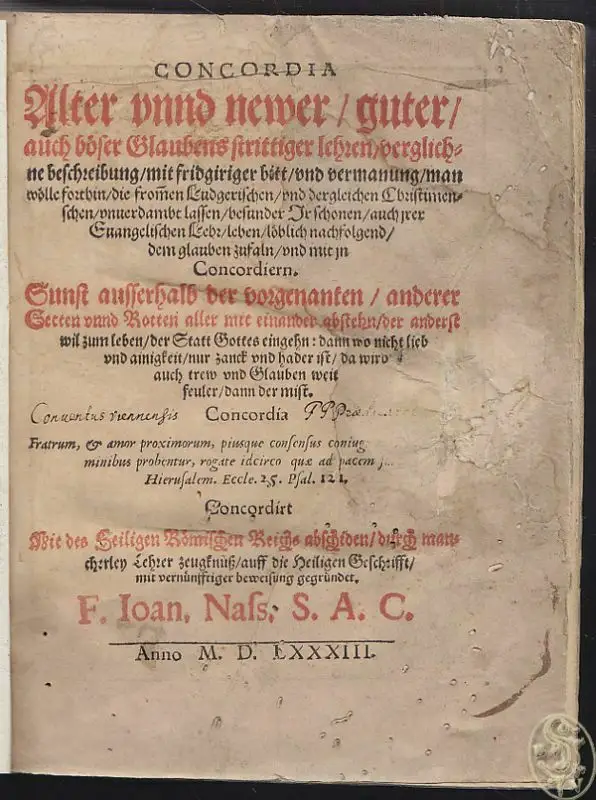 CONCORDIA
Alter vnnd newer / guter /
auch böser Glaubens strittiger lehren / verglich⸗
ne beschreibung / mit fridgiriger bitt / vnd vermanung / man
wölle forthin / die from̃en Ludgerischen / vnd dergleichen Christmen⸗
schen / vnuerdambt lassen / besunder Jr schonen / auch jrer
Euangelischen Lehr / leben / löblich nachfolgend /
dem glauben zufaln / vnd mit jn
Concordiern.
Sunst ausserhalb der vorgenanten / anderer
Secten vnnd Rotten aller mit einander abstehn / der anderst
wil zum leben / der Statt Gottes eingehn : dann wo nicht lieb
vnd ainigkeit / nur zanck vnd hader ist / da wird
auch trew vnd Glauben weit
feuler / dann der mist.
Conventus viennensis Concordia PP
Fratrum, & amor proximorum, piusque consensus coniug
minibus probentur, rogate idcirco quæ ad pacem
Hierusalem. Eccle. 25. Psal. 121.
Concordirt
Mit des Heiligen Römischen Reichs abschiden / durch man⸗
cherley Lehrer zeugknüß / auff die Heiligen Geschrifft /
mit vernünfftiger beweisung gegründet.
F. Ioan. Nass. S. A. C.
Anno M. D. LXXXIII.